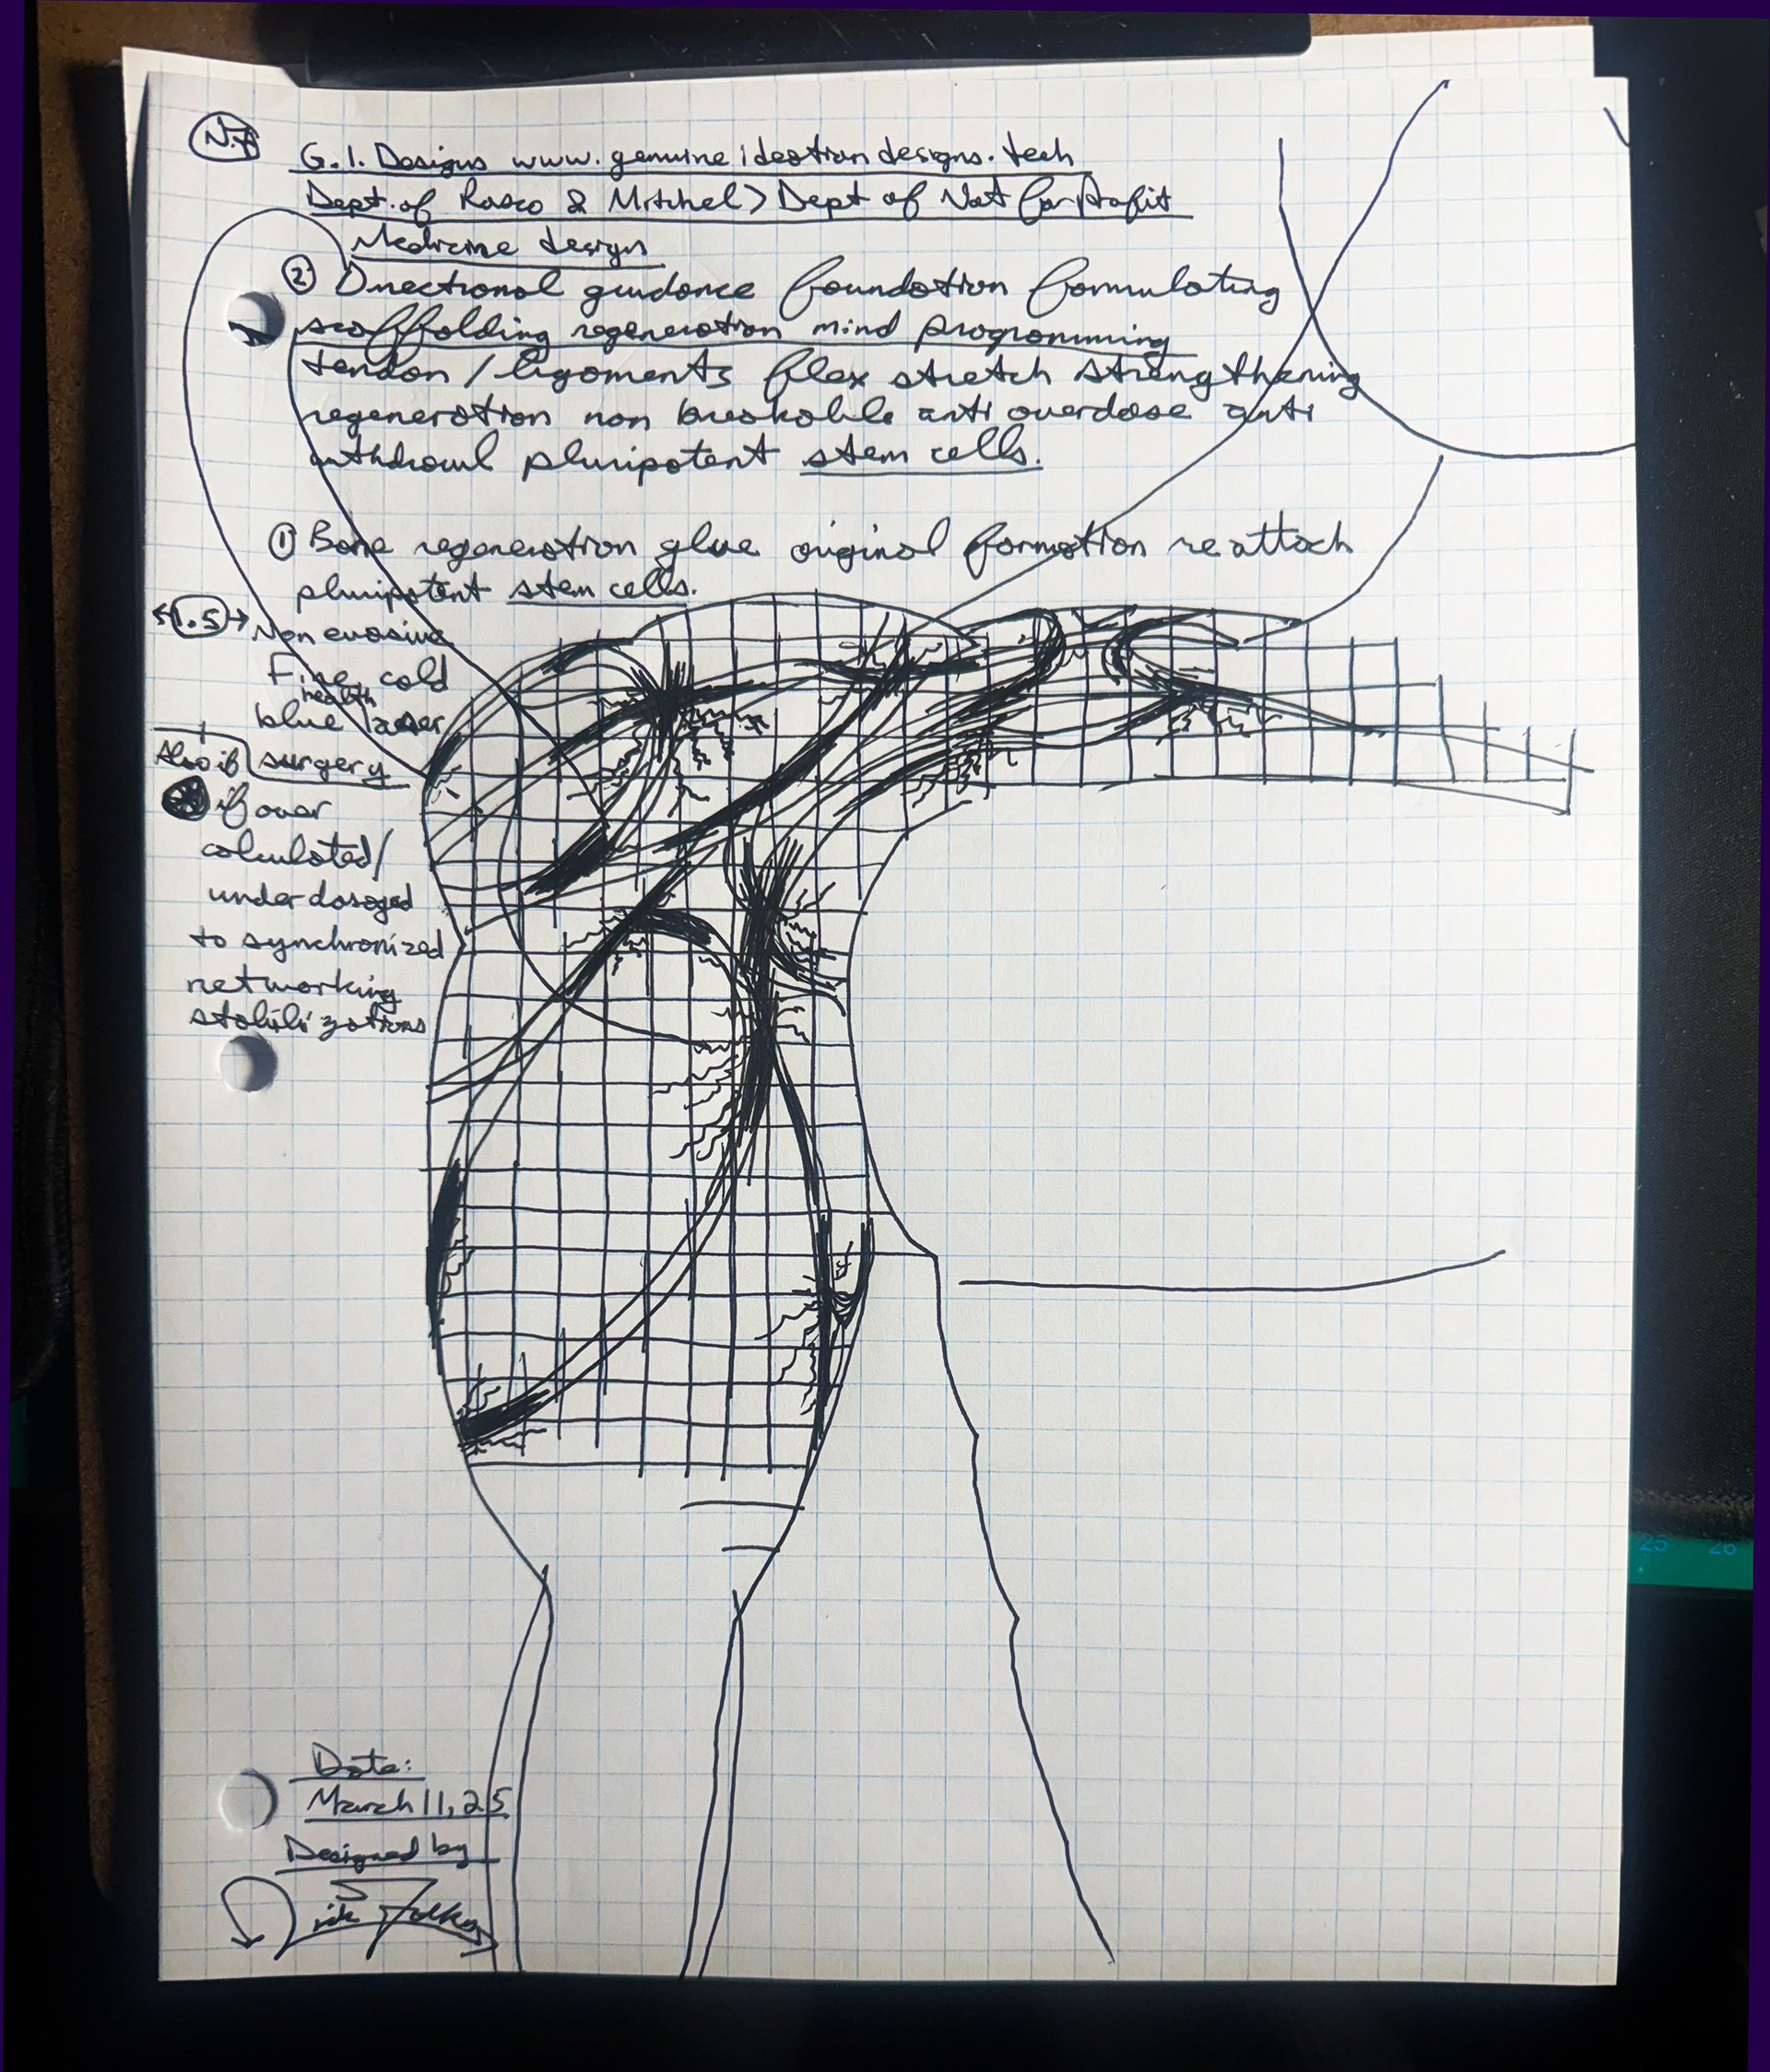 G.I. Designs www.genuineideationdesigns.tech
Dept. of Rasco & Mitchel > Dept of Not for Profit
Medicine design
② Directional guidance foundation formulating
scaffolding regeneration mind programming
tendon / ligaments flex stretch strengthening
regeneration non breakable anti overdose anti
withdrawl pluripotent stem cells.
① Bone regeneration glue original formation re attach
pluripotent stem cells.
1.5 Non evasive
Fine cold
health
blue laser
Also if surgery
if over
calculated/
under dosaged
to synchronized
networking
stabilizations
Date:
March 11, 25
Designed by
25 26